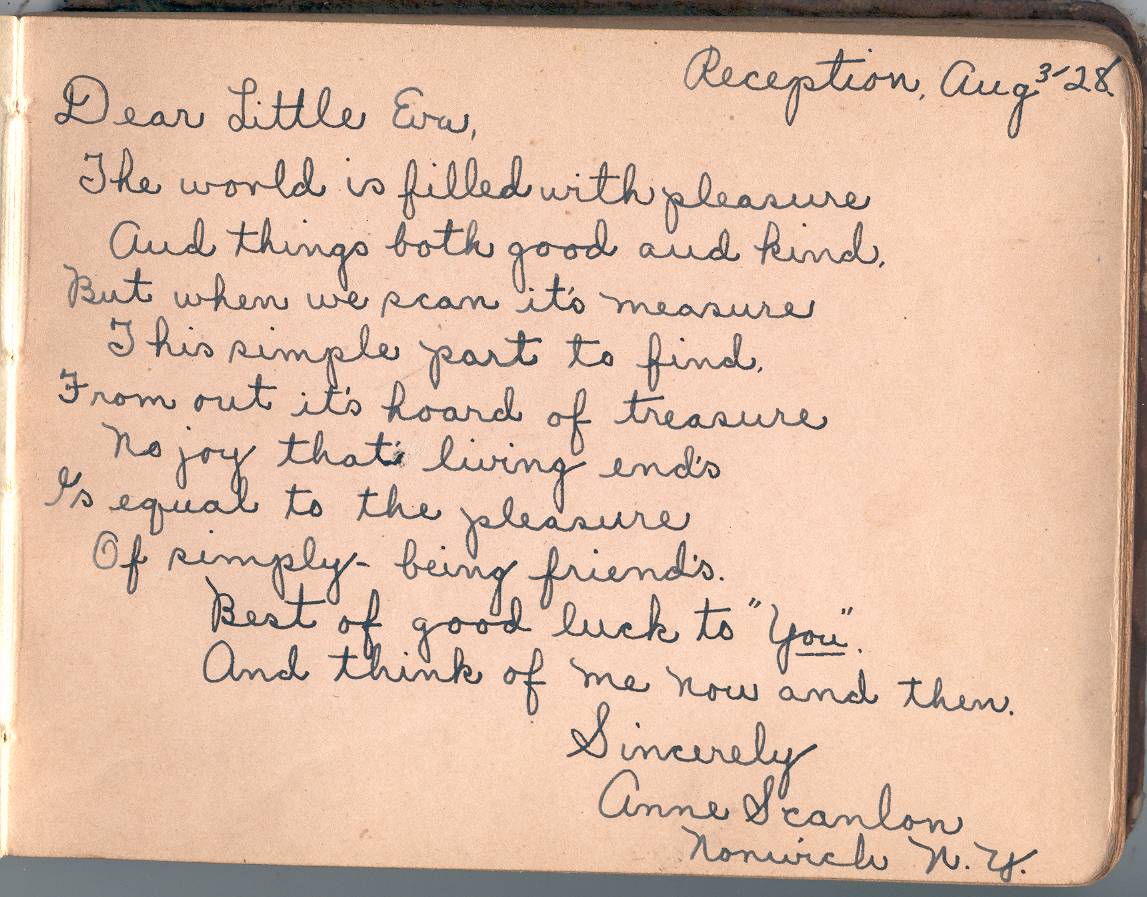 Reception, Aug 3/28
Dear Little Eva,
The world is filled with pleasure
And things both good and kind.
But when we scan it's measure
This simple part to find.
From out it's hoard of treasure
No joy that living end's
Is equal to the pleasure
Of simply - being friend's.
Best of good luck to "You".
And think of me now and then.
Sincerely
Anne Scanlon
Norwich N.Y.